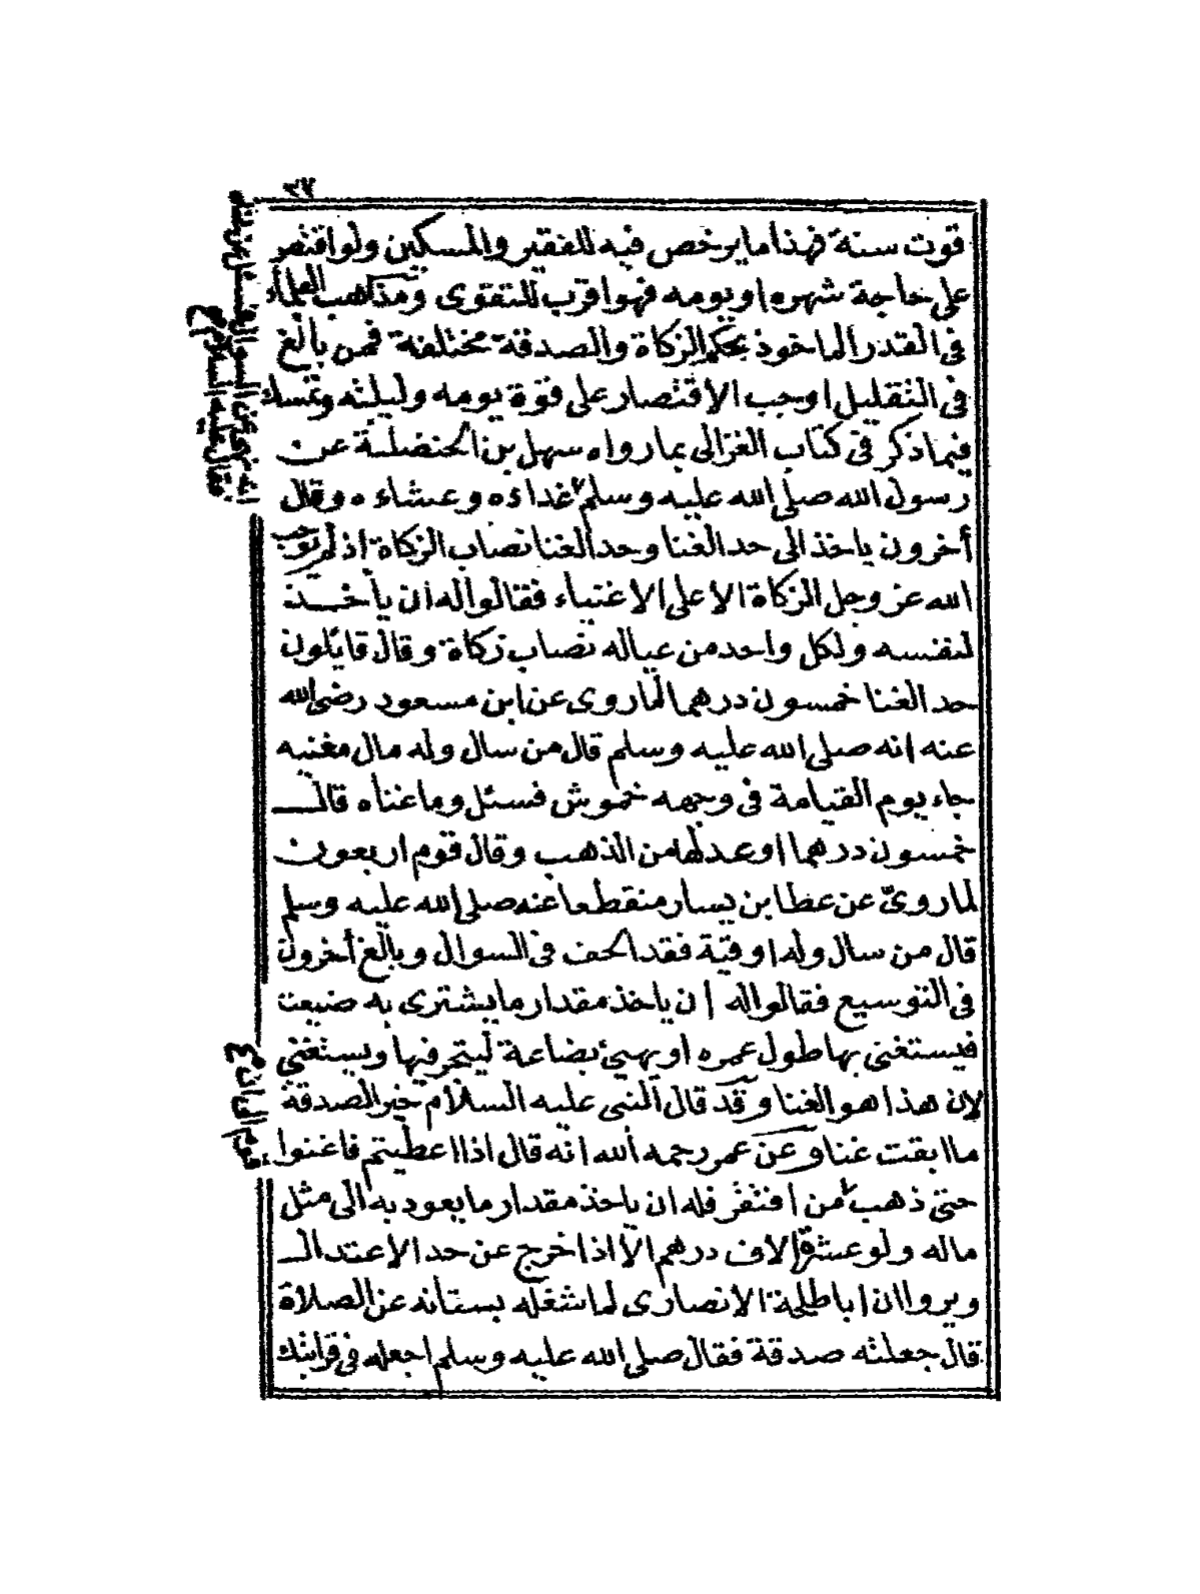 ٣٣
قوت سنة فهذا ما يرخص فيه للفقير والمسكين ولو اقتصر
على حاجة شهره او يومه فهوا قرب للتقوى ومذاهب العلماء
فى القدر الماخوذ بحكم الزكاة والصدقة مختلفة فمن بالغ
فى التقليل اوجب الاقتصار على قوة يومه وليلته وتمسك
فيما ذكر فى كتاب الغزالى بما رواه سهل بن الحنضلية عن
رسول الله صلى الله عليه وسلم غداءه وعشاءه وقال
أخرون ياخذ الى حد الغنا وحد الغنا نصاب الزكاة اذ لم توجب
الله عز وجل الزكاة الا على الاغنياء فقالوا له ان ياخذ
لنفسه ولكل واحد من عياله نصاب زكاة وقال قايلون
حد الغنا خمسون درهما لما روى عن ابن مسعود رضى الله
عنه انه صلى الله عليه وسلم قال من سال وله مال مغنيه
جاء يوم القيامة فى وجهه خموش فسئل وما غناه قال
خمسون درهما او عدلها من الذهب وقال قوم اربعون
لما روىّ عن عطا بن يسار منقطعا عنه صلى الله عليه وسلم
قال من سال وله اوقية فقد الحف فى السوال وبالغ أخرون
فى التوسيع فقالوا له ان ياخذ مقدار ما يشترى به ضيعت
فيستغنى بها طول عمره او يهيئ بضاعة ليتجر فيها ويستغنى
لان هذا هو الغنا وقد قال النبى عليه السلام خير الصدقة
ما ابقت غنا وعن عمر رحمه الله انه قال اذا اعطيتم فاغنوا
حتى ذهب من افتقر فله ان ياخذ مقدار ما يعود به الى مثل
ماله ولو عشرة الاف درهم الا اذا خرج عن حد الاعتدال
ويروا ان اباطلحة الانصارى لما شغله بستانه عن الصلاة
قال جعلته صدقة فقال صلى الله عليه وسلم اجعله فى قرابتك
انه نهى عن السوال
فقال عليه السلام
قوم الى ان